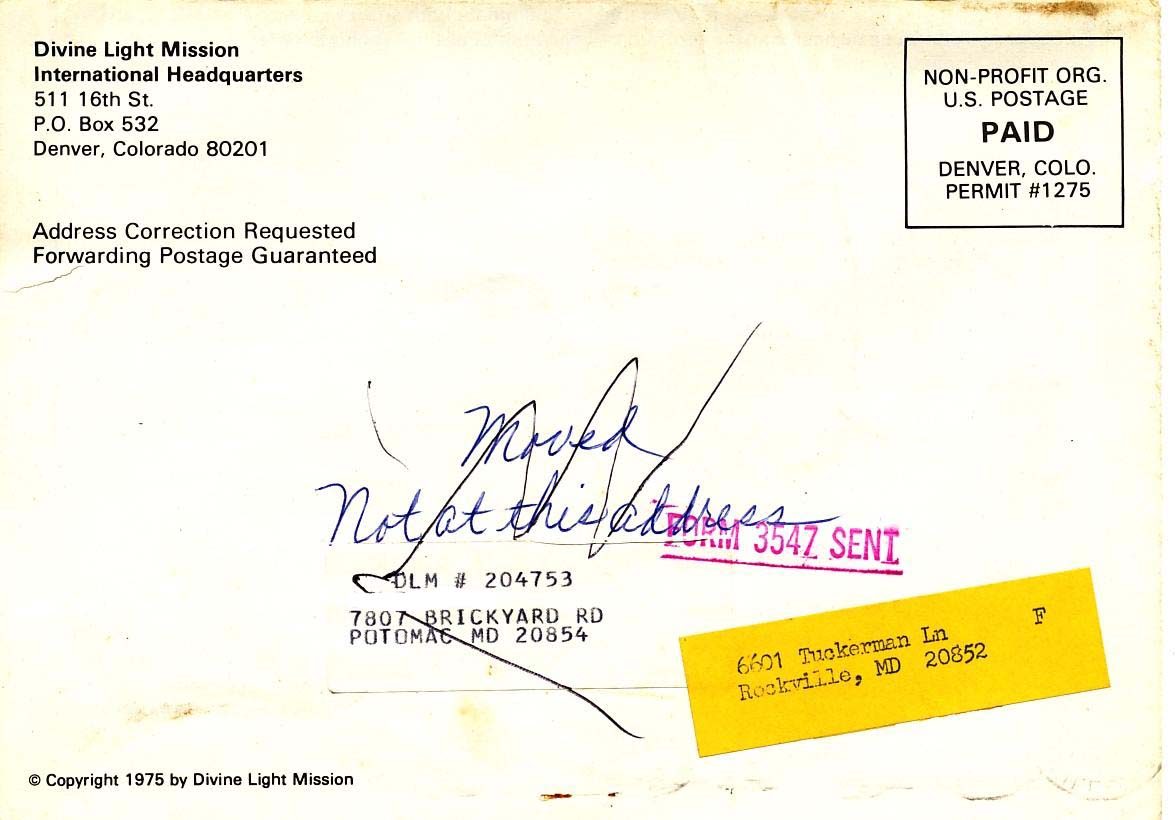 Divine Light Mission
International Headquarters
511 16th St.
P.O. Box 532
Denver, Colorado 80201
NON-PROFIT ORG.
U.S. POSTAGE
PAID
DENVER, COLO.
PERMIT #1275
Address Correction Requested
Forwarding Postage Guaranteed
Moved
Not at this address
FORM 3547 SENT
DLM # 204753
7807 BRICKYARD RD
POTOMAC MD 20854
F
6601 Tuckerman Ln
Rockville, MD 20852
© Copyright 1975 by Divine Light Mission